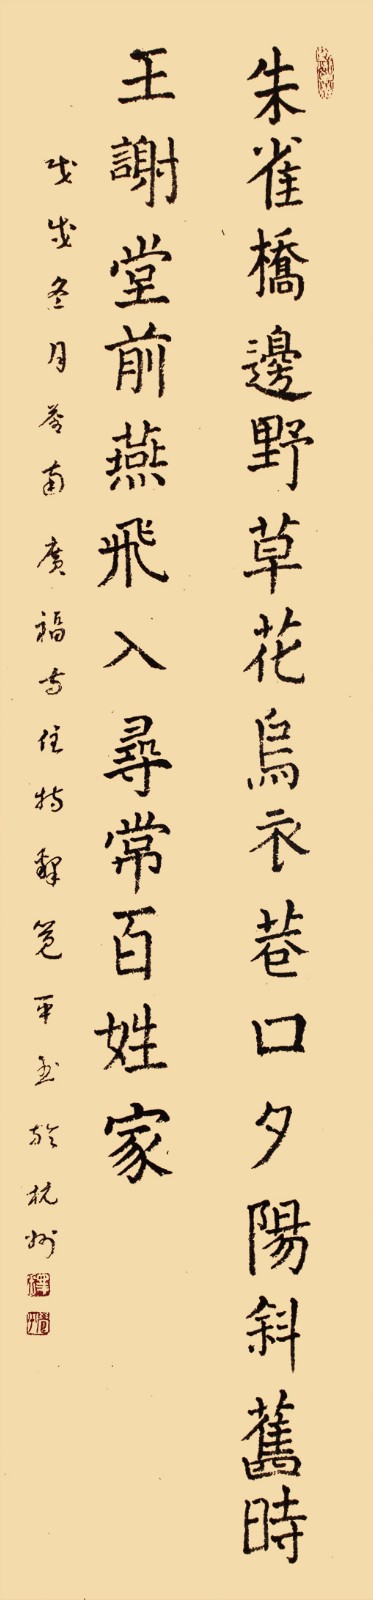 朱雀橋邊野草花烏衣巷口夕陽斜舊時
王謝堂前燕飛入尋常百姓家
戊戌冬月嶺南廣福寺住持釋覺平書於杭州